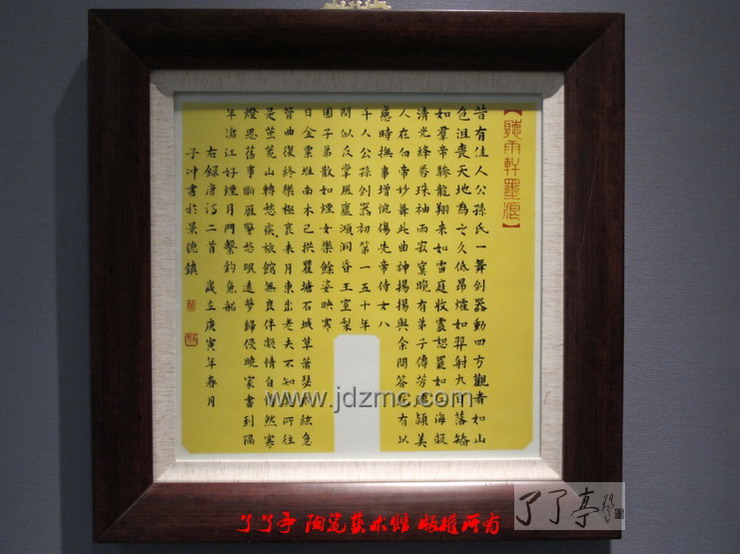 【聽雨軒墨痕】
昔有佳人公孫氏一舞劍器動四方觀者如山
色沮喪天地為之久低昂㸌如羿射九日落矯
如羣帝驂龍翔來如雷庭收震怒罷如江海凝
清光絳唇珠袖兩寂寞晚有弟子傳芳臨潁美
人在白帝妙舞此曲神揚揚與余問答既有以
感時撫事增惋傷先帝侍女八
千人公孫劍器初第一五十年
間似反掌風塵澒洞昏王室梨
園子弟散如煙女樂餘姿映寒
日金粟堆南木已拱瞿塘石城草蕭瑟玳絃急
管曲復終樂極哀來月東出老夫不知其所往
足茧荒山轉愁疾旅館無良伴凝情自悄然寒
燈思舊事斷雁警愁眠遠夢歸侵曉家書到隔
年滄江好煙月門繫釣魚船
右錄唐詩二首 歲在庚寅年春月
子沖書於景德鎮
www.jdzmc.com
了了亭 陶瓷艺术馆 版权所有
了了亭